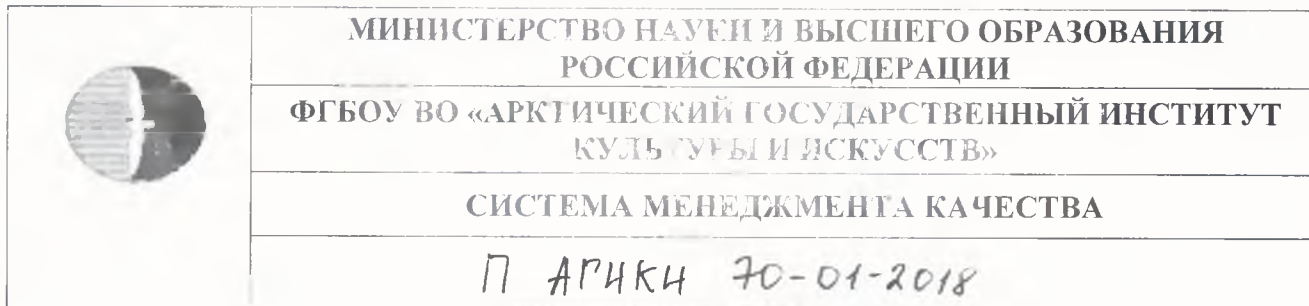 МИНИСТЕРСТВО НАУКИ И ВЫСШЕГО ОБРАЗОВАНИЯ
РОССИЙСКОЙ ФЕДЕРАЦИИ
ФГБОУ ВО «АРКТИЧЕСКИЙ ГОСУДАРСТВЕННЫЙ ИНСТИТУТ
КУЛЬТУРЫ И ИСКУССТВ»
СИСТЕМА МЕНЕДЖМЕНТА КАЧЕСТВА
П АГИКИ 70-01-2018